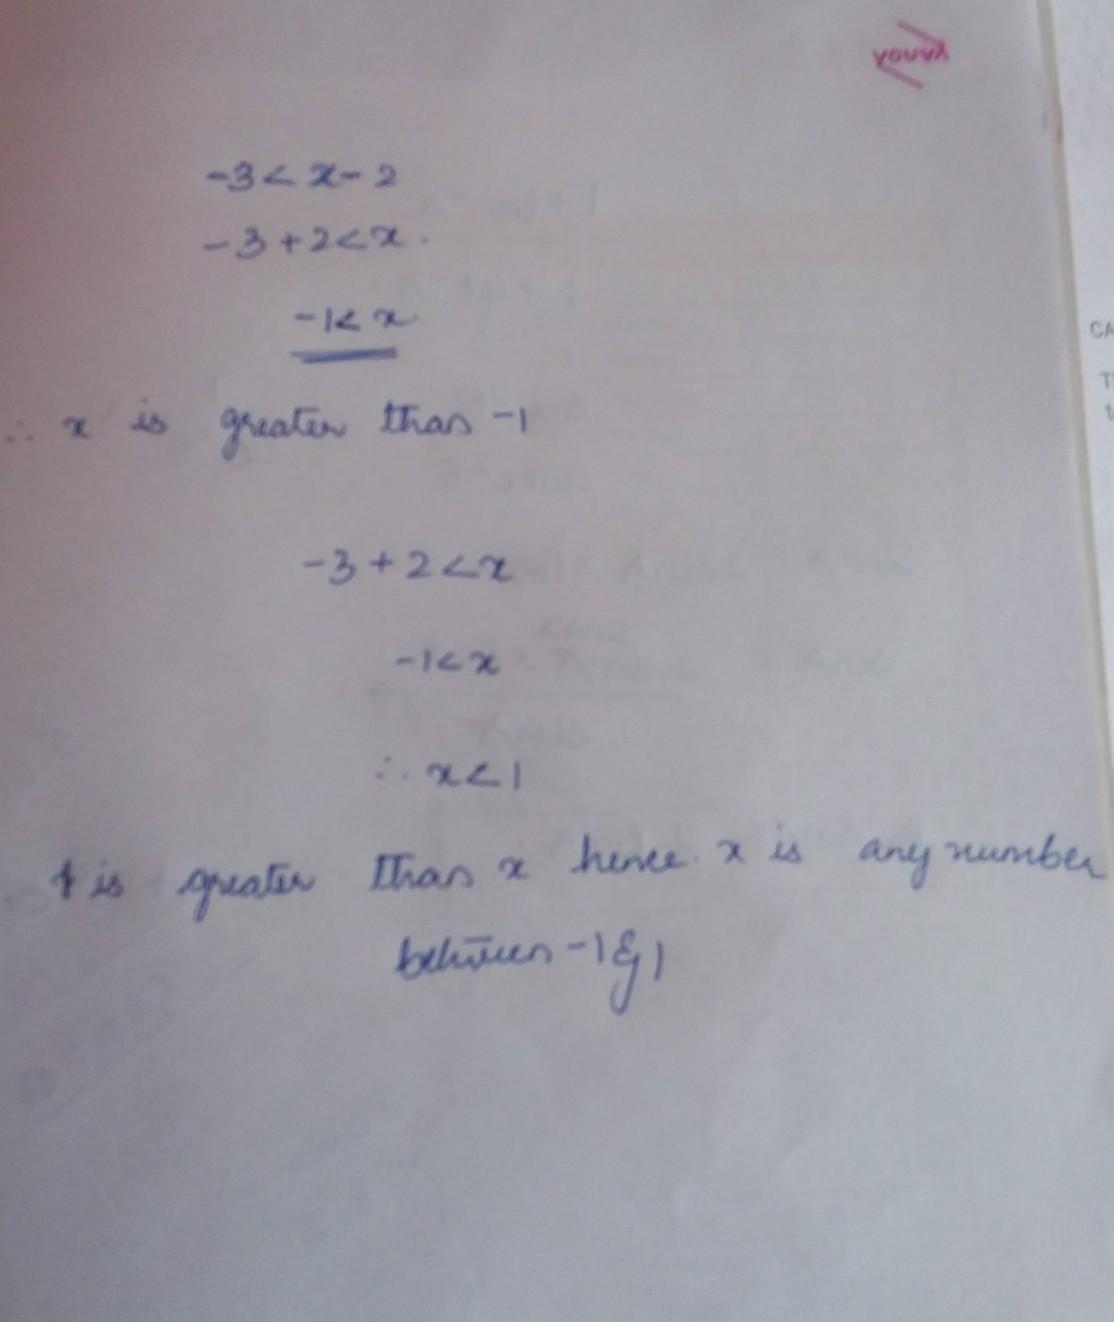 -3 < x - 2
-3 + 2 < x.
-1 < x
∴ x is greater than -1
-3 + 2 < x
-1 < x
∴ x < 1
1 is greater than x hence x is any number
between -1 & 1
CA